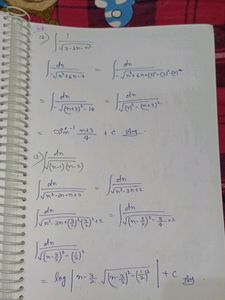 12) ∫ 1/√(7-6x-x²)
∫ dx/√-x²+6x-7 = ∫ dx/√-x²+6x+(3)²-(3)²-7
= ∫ dx/√-(x+3)²-16 = ∫ dx/√(4)²-(x+3)²
= Sin⁻¹ x+3/4 + c Ans.
13) ∫ dx/√(x-1)(x-2)
∫ dx/√x²-2x-x+2 = ∫ dx/√x²-3x+2
∫ dx/√x²-3x+(3/2)²-(3/2)²+2 = ∫ dx/√(x-3/2)²-9/4+2
∫ dx/√(x-3/2)²-(1/2)²
= log | x-3/2 √(x-3/2)²-(1/2)² | + C Ans